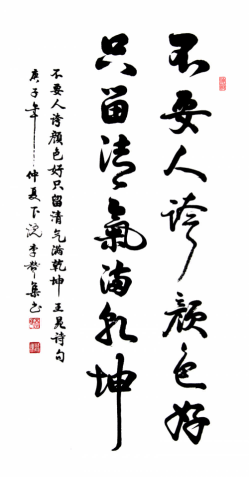 不要人誇顏色好
只留清氣滿乾坤
不要人誇顏色好只留清气滿乾坤王冕詩句
庚子年仲夏下浣李